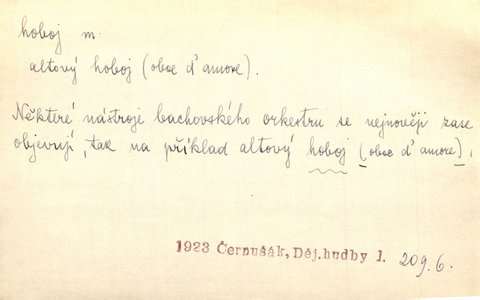 hoboj m.
altový hoboj (oboe d'amore).
Některé nástroje bachovského orkestru se nejnověji zase
objevují, tak na příklad altový hoboj (oboe d'amore),
1923 Černušák, Děj.hudby 1. 209.6.